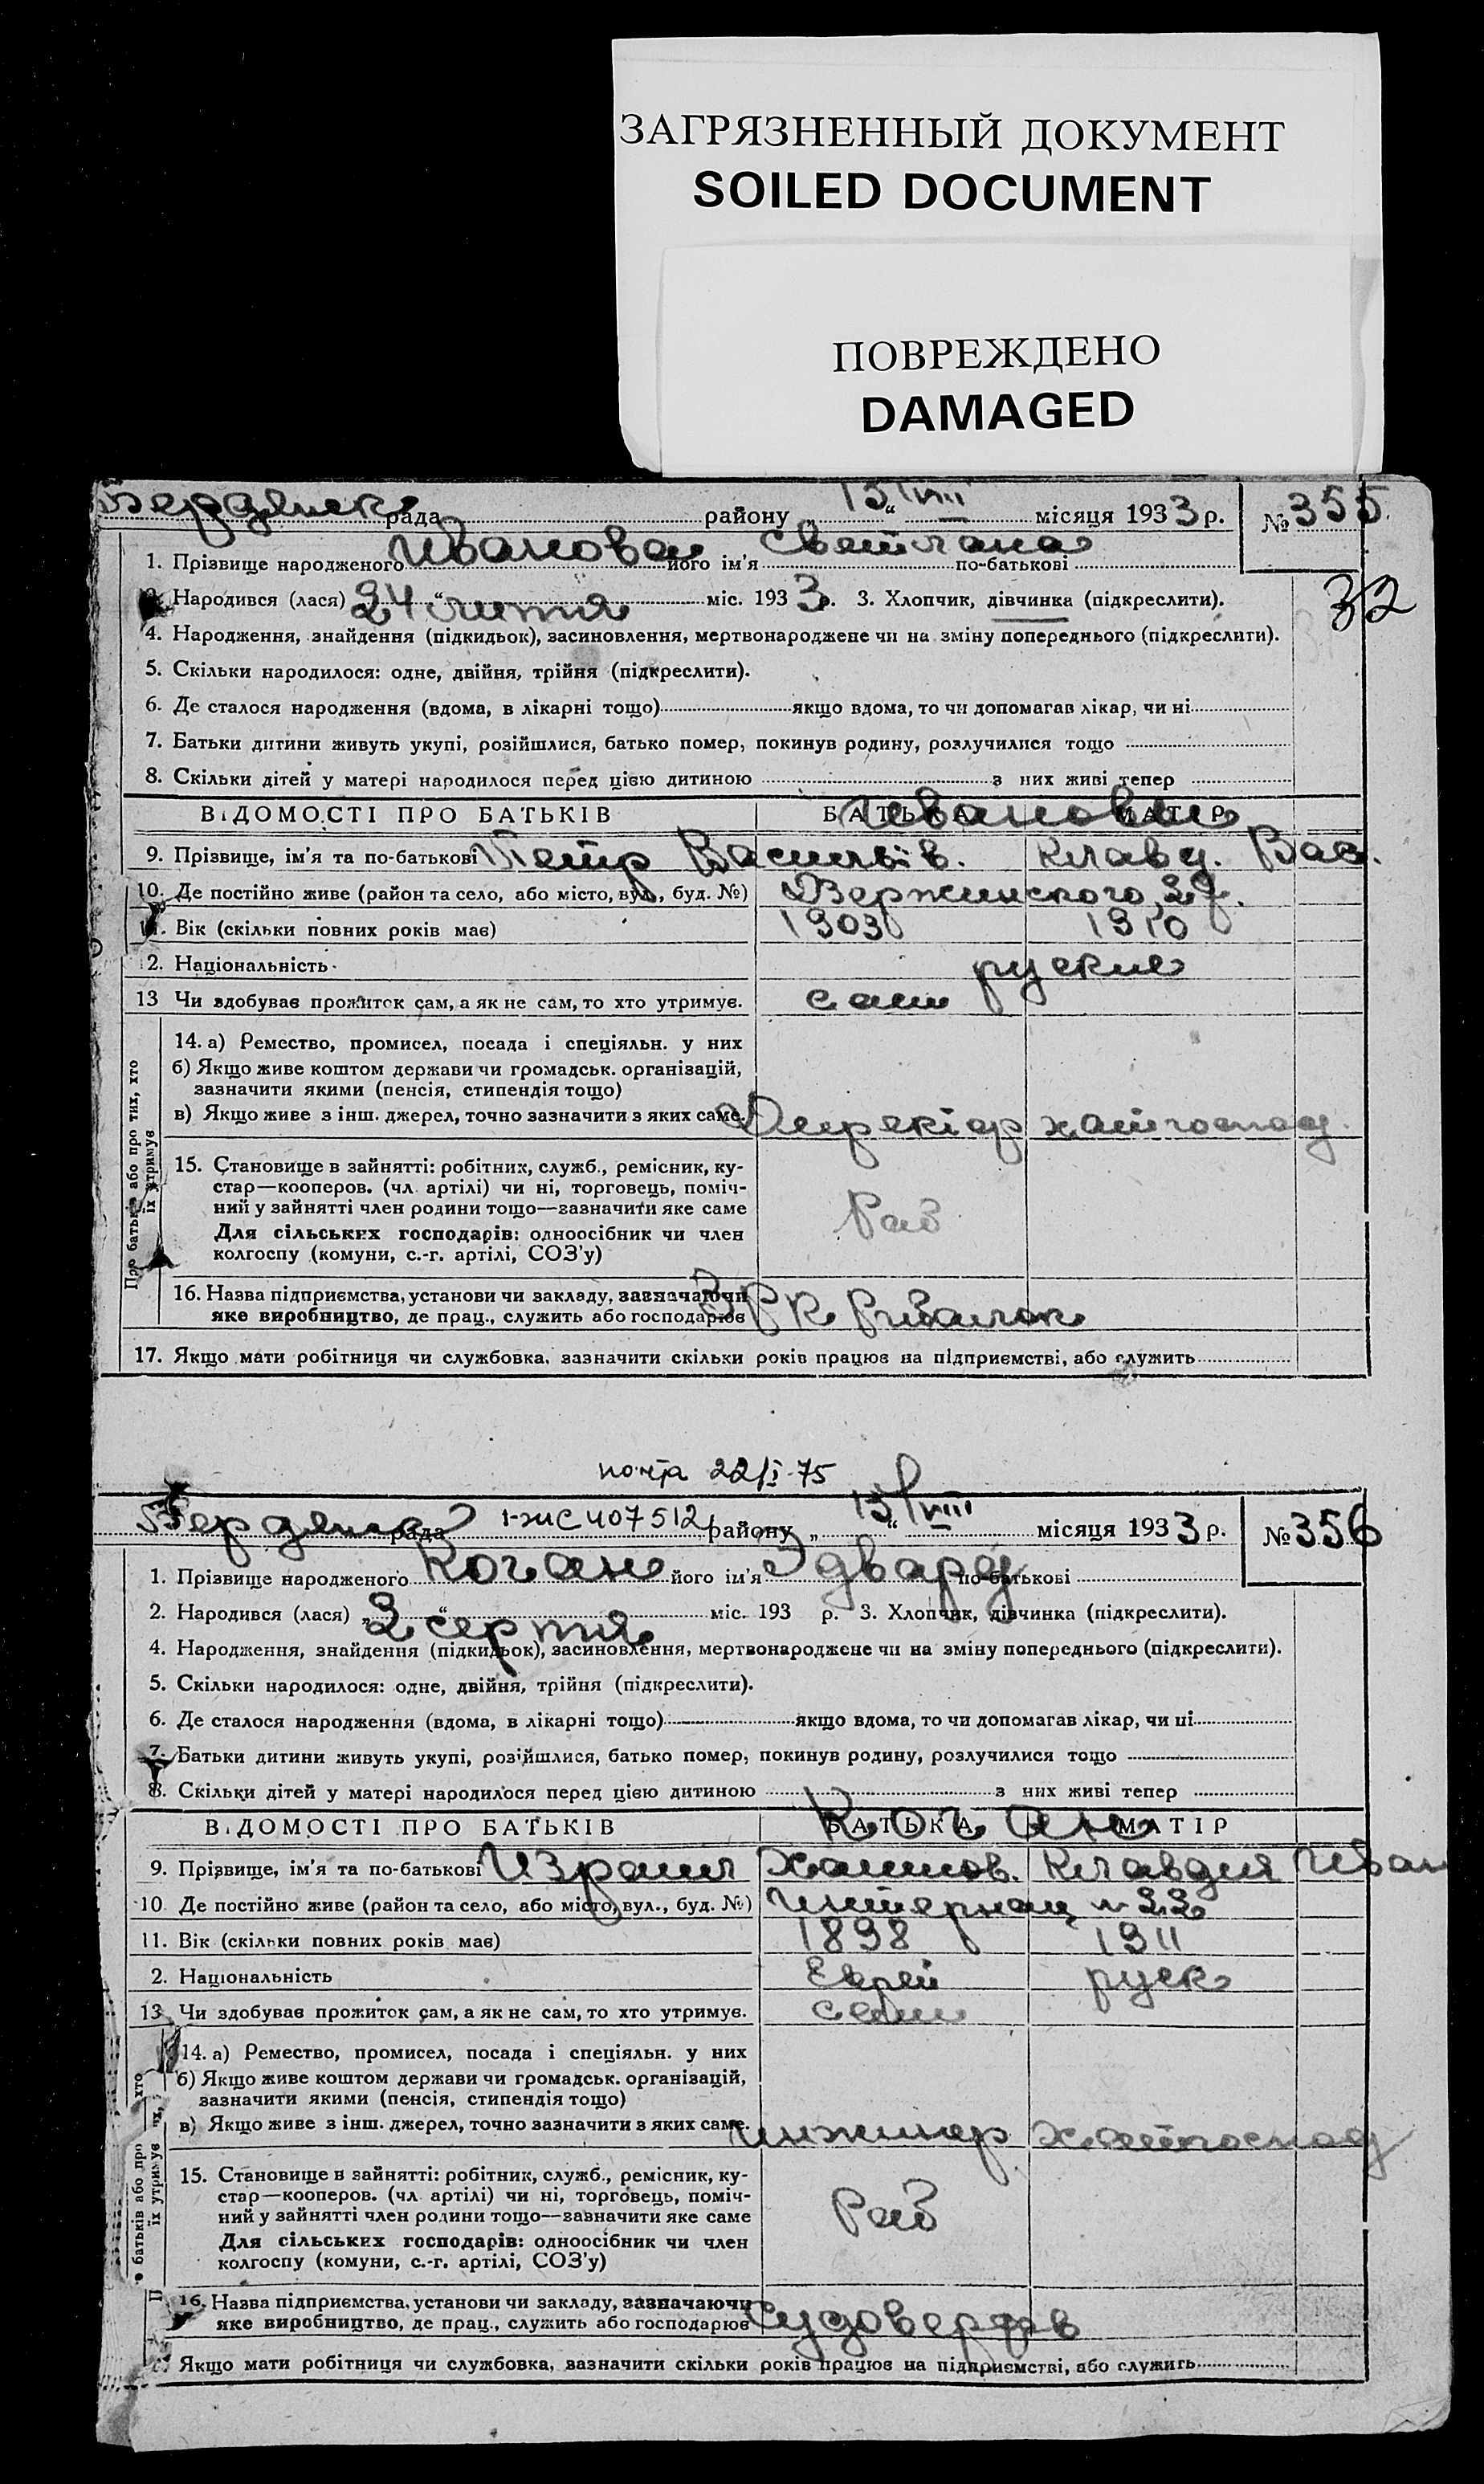 ЗАГРЯЗНЕННЫЙ ДОКУМЕНТ
SOILED DOCUMENT
ПОВРЕЖДЕНО
DAMAGED
Бердянск рада району „15“ VIII місяця 1933 р. № 355
1. Прізвище народженого Иванова його ім'я Светлана по-батькові
32
2. Народився (лася) „24“ липня міс. 1933 р. 3. Хлопчик, дівчинка (підкреслити).
4. Народження, знайдення (підкидьок), засиновлення, мертвонароджене чи на зміну попереднього (підкреслити).
5. Скільки народилося: одне, двійня, трійня (підкреслити).
6. Де сталося народження (вдома, в лікарні тощо) якщо вдома, то чи допомагав лікар, чи ні
7. Батьки дитини живуть укупі, розійшлися, батько помер, покинув родину, розлучилися тощо
8. Скільки дітей у матері народилося перед цією дитиною з них живі тепер
ВІДОМОСТІ ПРО БАТЬКІВ БАТЬКА МАТІР
Ивановы
9. Прізвище, ім'я та по-батькові Петр Васильїв. Клавд. Вас.
10. Де постійно живе (район та село, або місто, вул., буд. №) Дзержинского 27.
11. Вік (скільки повних років має) 1903 1910
12. Національність руские
13 Чи здобуває прожиток сам, а як не сам, то хто утримує. сам
Про батьків або про тих, хто їх утримує
14. а) Ремество, промисел, посада і спеціяльн. у них
б) Якщо живе коштом держави чи громадськ. організацій,
зазначити якими (пенсія, стипендія тощо)
в) Якщо живе з інш. джерел, точно зазначити з яких саме. Діректор хатгоспод.
15. Становище в зайнятті: робітник, служб., ремісник, ку-
стар—кооперов. (чл. артілі) чи ні, торговець, поміч-
ний у зайнятті член родини тощо—зазначити яке саме Раб
Для сільських господарів: одноосібник чи член
колгоспу (комуни, с.-г. артілі, СОЗ'у)
16. Назва підприємства, установи чи закладу, зазначаючи
яке виробництво, де прац., служить або господарює ЗРК Рибалок
17. Якщо мати робітниця чи службовка, зазначити скільки років працює на підприємстві, або служить
почта 22/I-75
Бердянск рада I-жс 407512 району „15“ VIII місяця 1933 р. № 356
1. Прізвище народженого Коган його ім'я Эдвард по-батькові
2. Народився (лася) „2“ серпня міс. 193 р. 3. Хлопчик, дівчинка (підкреслити).
4. Народження, знайдення (підкидьок), засиновлення, мертвонароджене чи на зміну попереднього (підкреслити).
5. Скільки народилося: одне, двійня, трійня (підкреслити).
6. Де сталося народження (вдома, в лікарні тощо) якщо вдома, то чи допомагав лікар, чи ні
7. Батьки дитини живуть укупі, розійшлися, батько помер, покинув родину, розлучилися тощо
8. Скільки дітей у матері народилося перед цією дитиною з них живі тепер
ВІДОМОСТІ ПРО БАТЬКІВ БАТЬКА МАТІР
Коган
9. Прізвище, ім'я та по-батькові Израил Хаимов. Клавдия Иван
10 Де постійно живе (район та село, або місто, вул., буд. №) Интернац № 22
11. Вік (скільки повних років має) 1898 1911
2. Національність Еврей руск
13 Чи здобуває прожиток сам, а як не сам, то хто утримує. сам
14. а) Ремество, промисел, посада і спеціяльн. у них
б) Якщо живе коштом держави чи громадськ. організацій,
зазначити якими (пенсія, стипендія тощо)
в) Якщо живе з інш. джерел, точно зазначити з яких саме. инжинер хатгоспод
15. Становище в зайнятті: робітник, служб., ремісник, ку-
стар—кооперов. (чл. артілі) чи ні, торговець, поміч-
ний у зайнятті член родини тощо—зазначити яке саме Раб
Для сільських господарів: одноосібник чи член
колгоспу (комуни, с.-г. артілі, СОЗ'у)
16. Назва підприємства, установи чи закладу, зазначаючи
яке виробництво, де прац., служить або господарює Судоверфь
Якщо мати робітниця чи службовка, зазначити скільки років працює на підприємстві, або служить